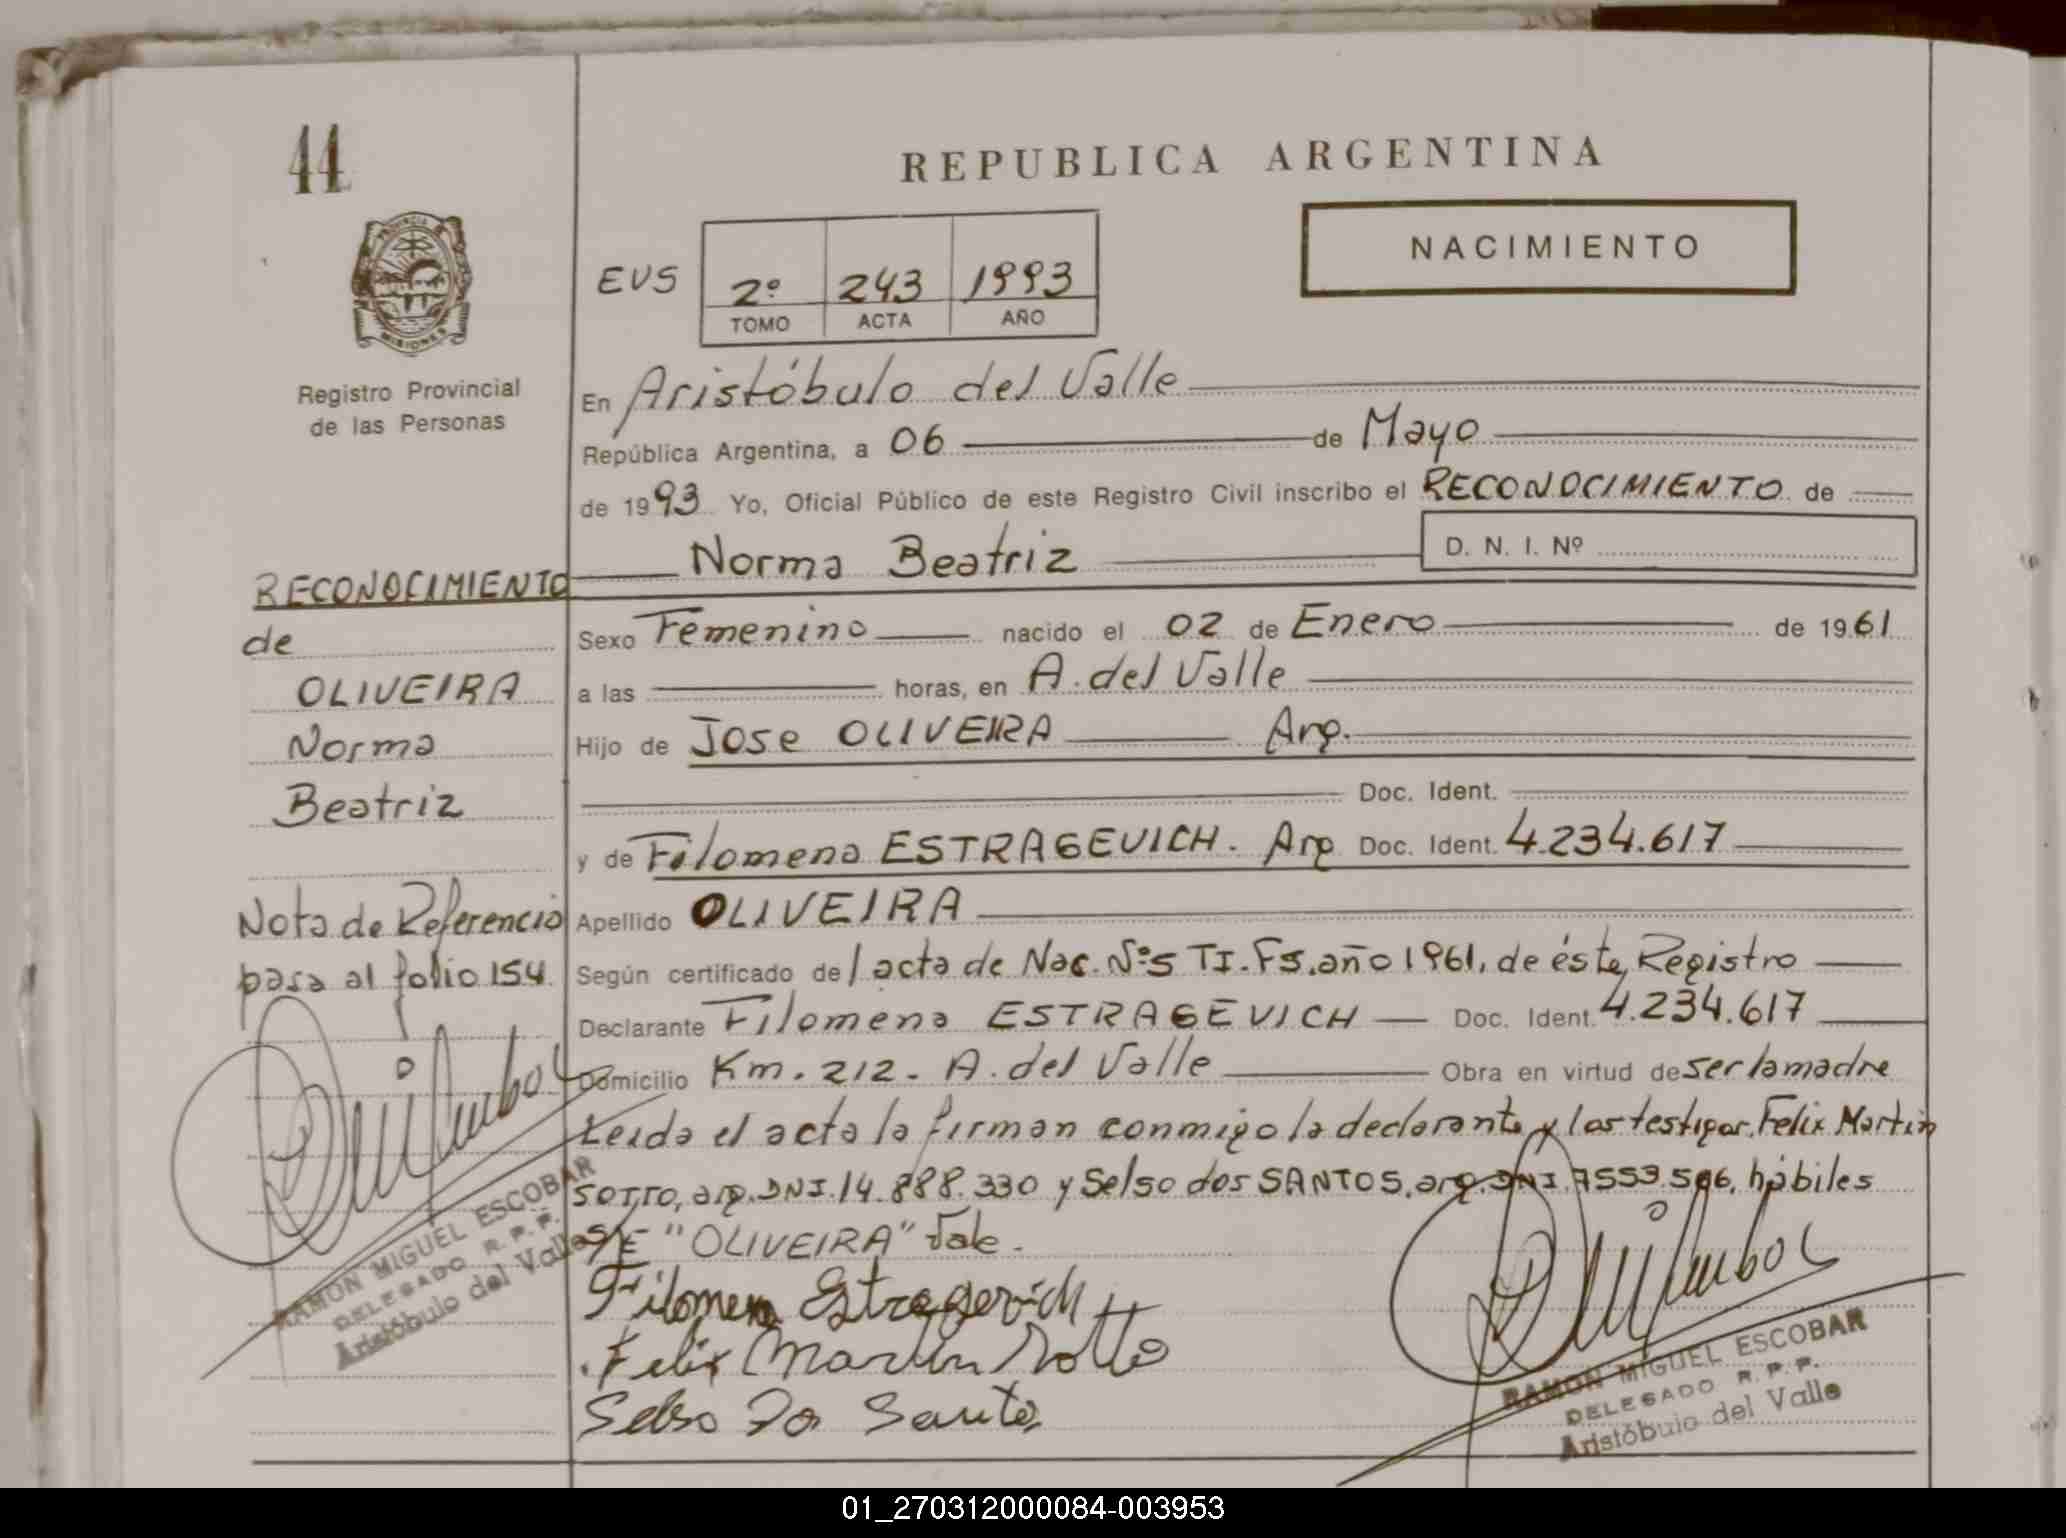 44
REPUBLICA ARGENTINA
NACIMIENTO
EVS
2º 243 1993
TOMO ACTA AÑO
PROVINCIA DE
MISIONES
Registro Provincial
de las Personas
En Aristóbulo del Valle
República Argentina, a 06 de Mayo
de 1993 Yo, Oficial Público de este Registro Civil inscribo el RECONOCIMIENTO de
Norma Beatriz D. N. I. Nº
RECONOCIMIENTO
de
OLIVEIRA
Norma
Beatriz
Nota de Referencia
pasa al folio 154
Sexo Femenino nacido el 02 de Enero de 1961
a las horas, en A. del Valle
Hijo de Jose OLIVEIRA Arg.
Doc. Ident.
y de Filomena ESTRAGEVICH. Arg Doc. Ident. 4.234.617
Apellido OLIVEIRA
Según certificado del acta de Nac. Nº5 TI. F5. año 1961, de éste Registro
Declarante Filomena ESTRAGEVICH Doc. Ident. 4.234.617
Domicilio Km. 212. A. del Valle Obra en virtud de ser la madre
Leida el acta la firman conmigo la declarante y los testigos, Felix Martin
SOTTO, arg. DNI. 14.888.330 y Selso dos SANTOS, arg. DNI. 7553.506, hábiles
S/E "OLIVEIRA" Vale.
Filomena Estragevich
Felix Martin Sotto
Selso Do Santo
RAMON MIGUEL ESCOBAR
DELEGADO R. P. P.
Aristóbulo del Valle
RAMON MIGUEL ESCOBAR
DELEGADO R. P. P.
Aristóbulo del Valle
01_270312000084-003953